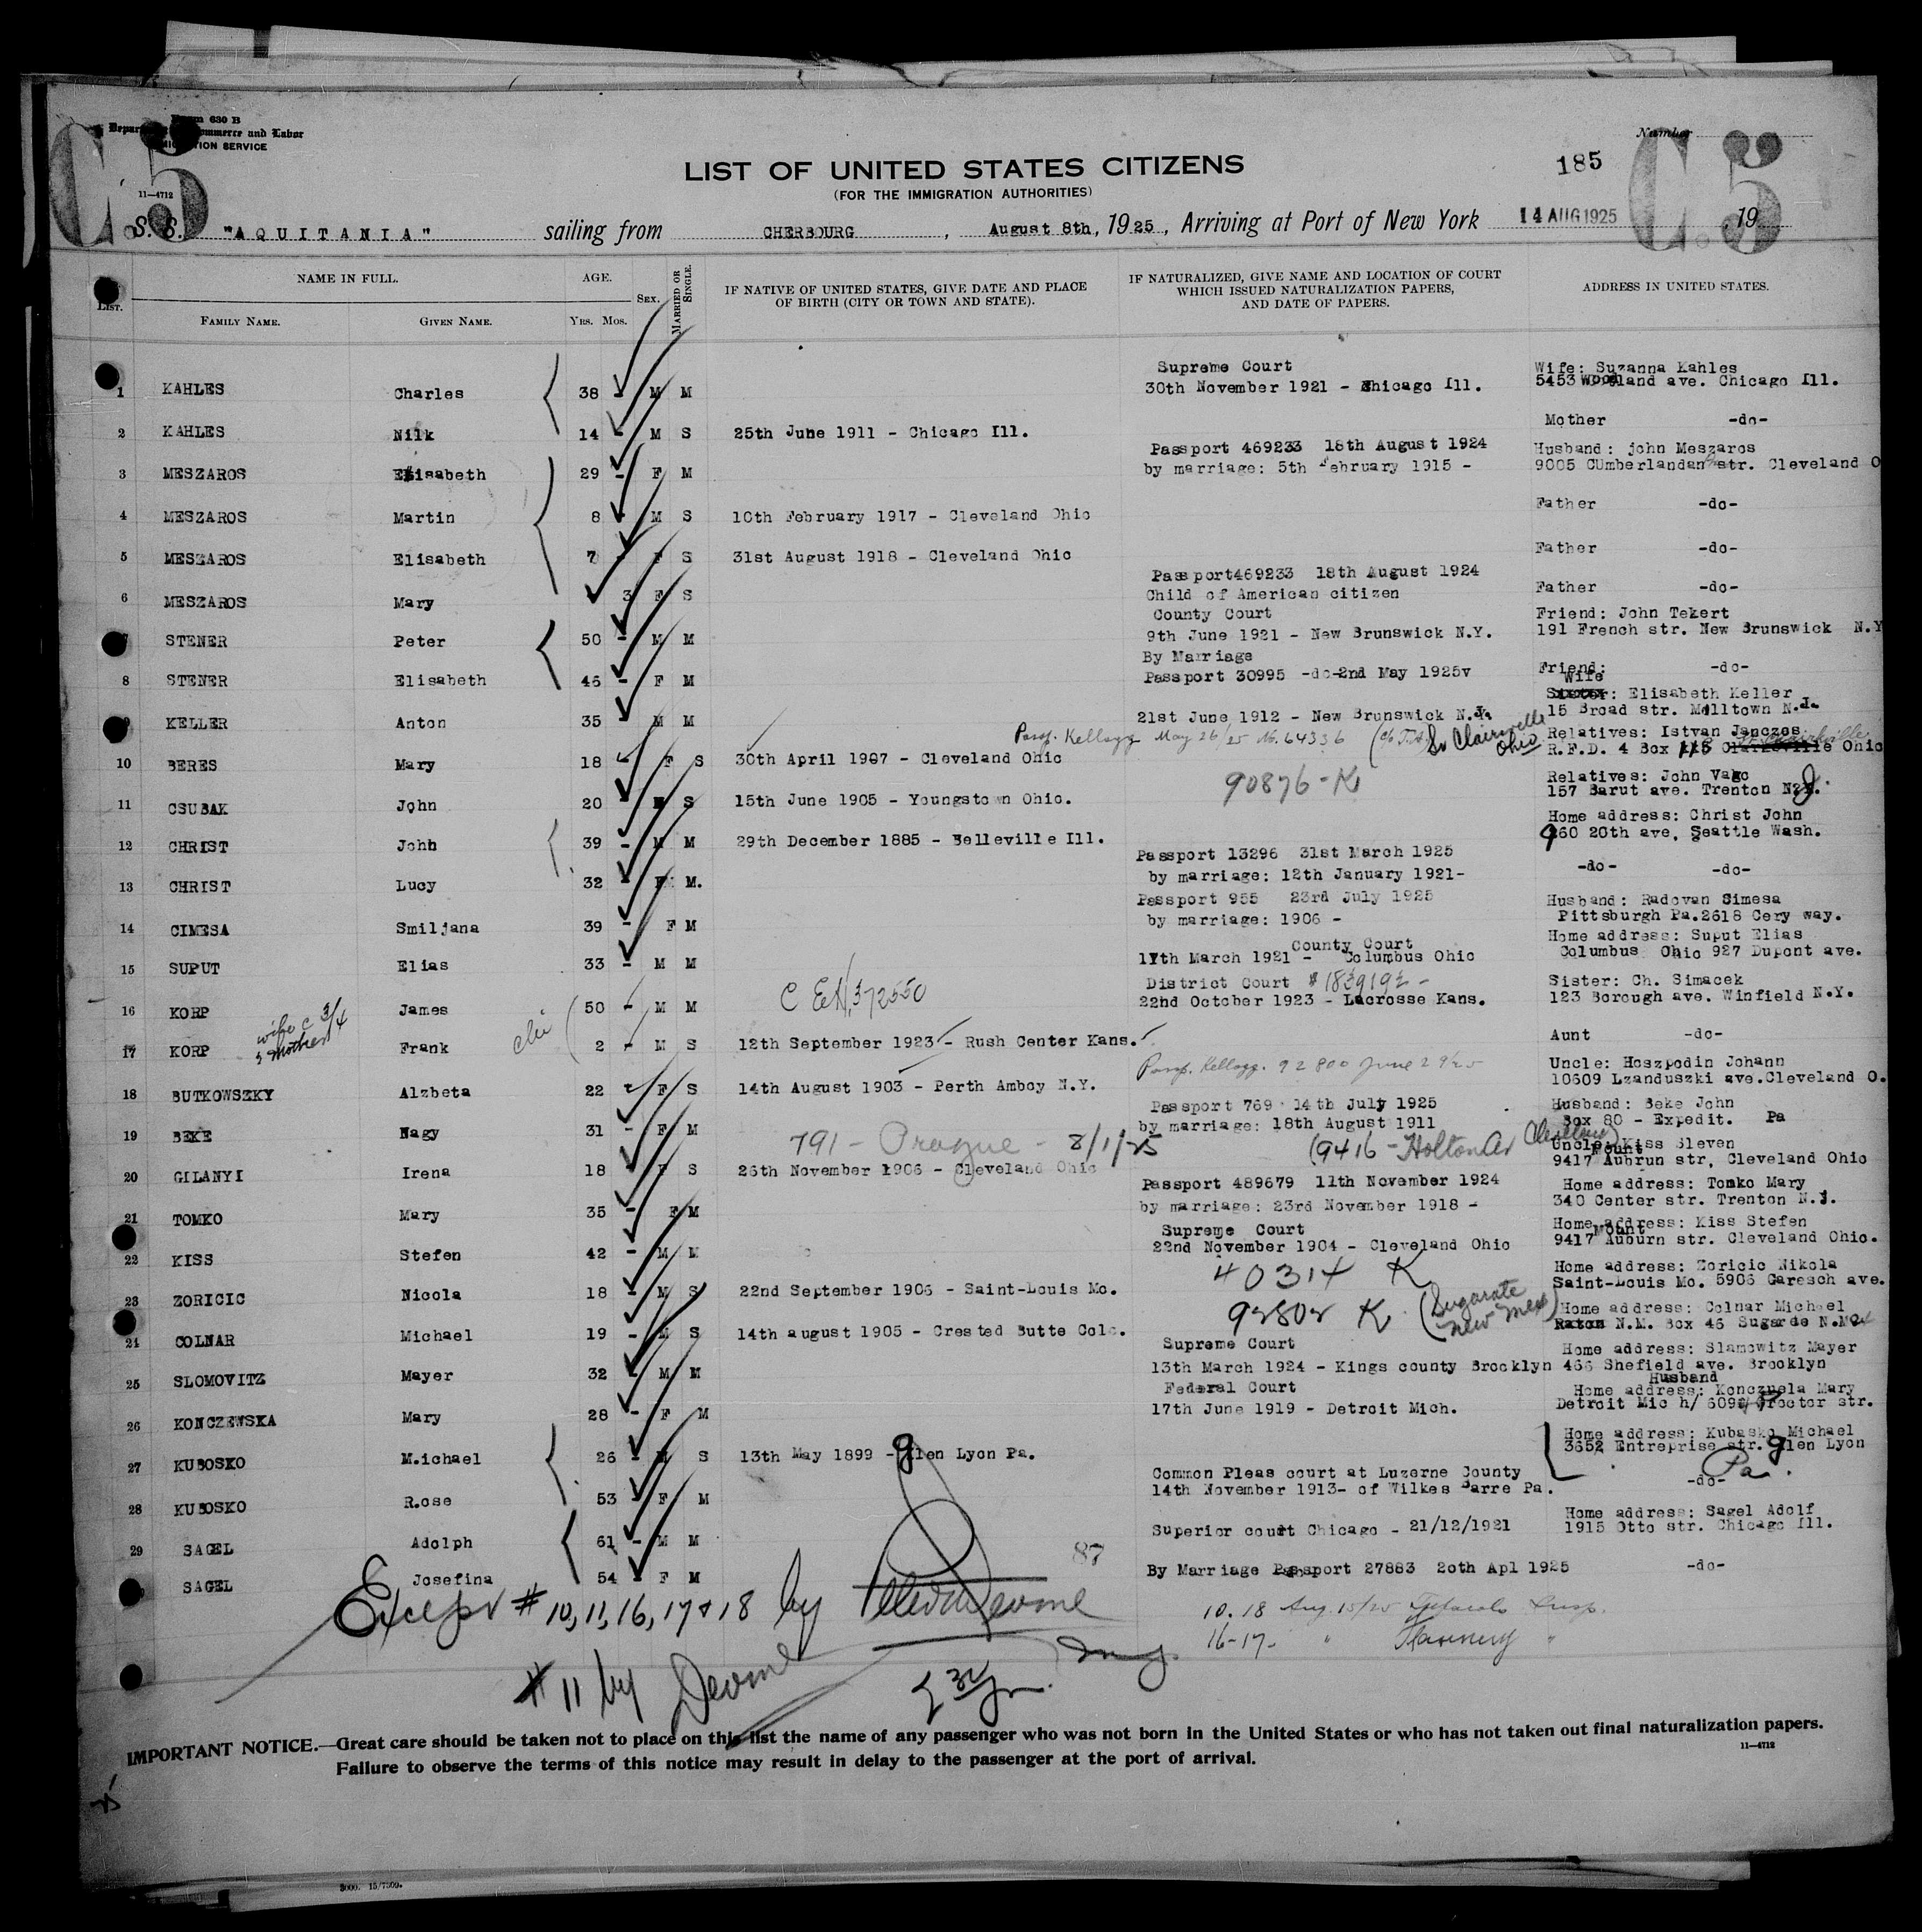 Form 630 B
Department of Commerce and Labor
IMMIGRATION SERVICE
11—4712
C. 5
Number
185
C. 5
LIST OF UNITED STATES CITIZENS
(FOR THE IMMIGRATION AUTHORITIES)
S. S. "AQUITANIA" sailing from CHERBOURG, August 8th, 1925, Arriving at Port of New York 14 AUG 1925 19
NAME IN FULL. AGE. SEX. MARRIED OR SINGLE. IF NATIVE OF UNITED STATES, GIVE DATE AND PLACE OF BIRTH (CITY OR TOWN AND STATE). IF NATURALIZED, GIVE NAME AND LOCATION OF COURT WHICH ISSUED NATURALIZATION PAPERS, AND DATE OF PAPERS. ADDRESS IN UNITED STATES.
LIST. FAMILY NAME. GIVEN NAME. YRS. MOS.
Supreme Court Wife: Suzanna Kahles
1 KAHLES Charles 38 - M M 30th November 1921 - Chicago Ill. 5453 Woodland ave. Chicago Ill.
2 KAHLES Nilk 14 - M S 25th June 1911 - Chicago Ill. Mother -do-
Passport 469233 18th August 1924 Husband: john Meszaros
3 MESZAROS Elisabeth 29 - F M by marriage: 5th February 1915 - 9005 CUmberlandan str. Cleveland O
4 MESZAROS Martin 8 - M S 10th February 1917 - Cleveland Ohio Father -do-
5 MESZAROS Elisabeth 7 - F S 31st August 1918 - Cleveland Ohio Father -do-
Passport469233 18th August 1924
6 MESZAROS Mary 3 F S Child of American citizen Father -do-
County Court Friend: John Tekert
7 STENER Peter 50 - M M 9th June 1921 - New Brunswick N.Y. 191 French str. New Brunswick N.Y
By Marriage
8 STENER Elisabeth 46 - F M Passport 30995 -do-2nd May 1925v Friend: -do-
Wife
: Elisabeth Keller
9 KELLER Anton 35 M M 21st June 1912 - New Brunswick N.J. 15 Broad str. Milltown N.J.
Passp. Kellogg May 26/25 No. 64336 St Clairsville Ohio Relatives: Istvan Janczos
10 BERES Mary 18 F S 30th April 1907 - Cleveland Ohio R.F.D. 4 Box 115 Clairsville Ohio
90876-K Relatives: John Vago
11 CSUBAK John 20 M S 15th June 1905 - Youngstown Ohio. 157 Barut ave. Trenton N.J.
Home address: Christ John
12 CHRIST John 39 - M M 29th December 1885 - Belleville Ill. 960 20th ave. Seattle Wash.
Passport 13296 31st March 1925
13 CHRIST Lucy 32 - F M. by marriage: 12th January 1921- -do- -do-
Passport 955 23rd July 1925 Husband: Radovan Simesa
14 CIMESA Smiljana 39 - F M by marriage: 1906 - Pittsburgh Pa.2618 Cery way.
County Court Home address: Suput Elias
15 SUPUT Elias 33 - M M 17th March 1921 - Columbus Ohio Columbus Ohio 927 Dupont ave.
C E#, 372550 District Court #1839192 - Sister: Ch. Simacek
16 KORP James 50 - M M 22nd October 1923 - Lacrosse Kans. 123 Borough ave. Winfield N.Y.
wife c 3/4
& mother
17 KORP Frank 2 - M S 12th September 1923 - Rush Center Kans. Aunt -do-
Passp. Kellogg. 92800 June 29/25 Uncle: Hoszpodin Johann
18 BUTKOWSZKY Alzbeta 22 F S 14th August 1903 - Perth Amboy N.Y. 10609 Lzanduszki ave.Cleveland O.
Passport 769 14th July 1925 Husband: Beke John
19 BEKE Nagy 31 - F M by marriage: 18th August 1911 Box 80 - Expedit. Pa
791 - Prague - 8/1/25 (9416 - Holton Av Cleveland) Uncle: Kiss Sleven
20 GILANYI Irena 18 F S 26th November 1906 - Cleveland Ohio 9417 Mount Aubrun str, Cleveland Ohio
Passport 489679 11th November 1924 Home address: Tomko Mary
21 TOMKO Mary 35 - F M by marriage: 23rd November 1918 - 340 Center str. Trenton N.J.
Supreme Court Home address: Kiss Stefen
22 KISS Stefen 42 - M M 22nd November 1904 - Cleveland Ohio 9417 Mount Auburn str. Cleveland Ohio.
40314 K Home address: Zoricic Nikola
23 ZORICIC Nicola 18 - M S 22nd September 1906 - Saint-Louis Mo. Saint-Louis Mo. 5906 Garesch ave.
92802 K (Sugarate New Mex) Home address: Colnar Michael
24 COLNAR Michael 19 - M S 14th august 1905 - Crested Butte Colo. Raton N.M. Box 46 Sugarde N.Mex
Supreme Court Home address: Slamowitz Mayer
25 SLOMOVITZ Mayer 32 - M M 13th March 1924 - Kings county Brooklyn 466 Shefield ave. Brooklyn
Husband
Federal Court Home address: Konczuela Mary
26 KONCZEWSKA Mary 28 - F M 17th June 1919 - Detroit Mich. Detroit Mic h/ 609 Proctor str.
Home address: Kubasko Michael
27 KUBOSKO M.ichael 26 - M S 13th May 1899 - glen Lyon Pa. 3652 Entreprise str. glen Lyon
Pa.
Common Pleas court at Luzerne County
28 KUBOSKO R.ose 53 - F M 14th November 1913- of Wilkes Barre Pa. -do-
Home address: Sagel Adolf
29 SAGEL Adolph 61 - M M Superior court Chicago - 21/12/1921 1915 Otto str. Chicago Ill.
87
SAGEL Josefina 54 - F M By Marriage Passport 27883 20th Apl 1925 -do-
Except # 10, 11, 16, 17 & 18 by
10. 18 Aug. 15/25 Insp.
16-17- " Flannery "
# 11 by Devine
IMPORTANT NOTICE.—Great care should be taken not to place on this list the name of any passenger who was not born in the United States or who has not taken out final naturalization papers.
Failure to observe the terms of this notice may result in delay to the passenger at the port of arrival.
11—4712
3000. 15/7509.